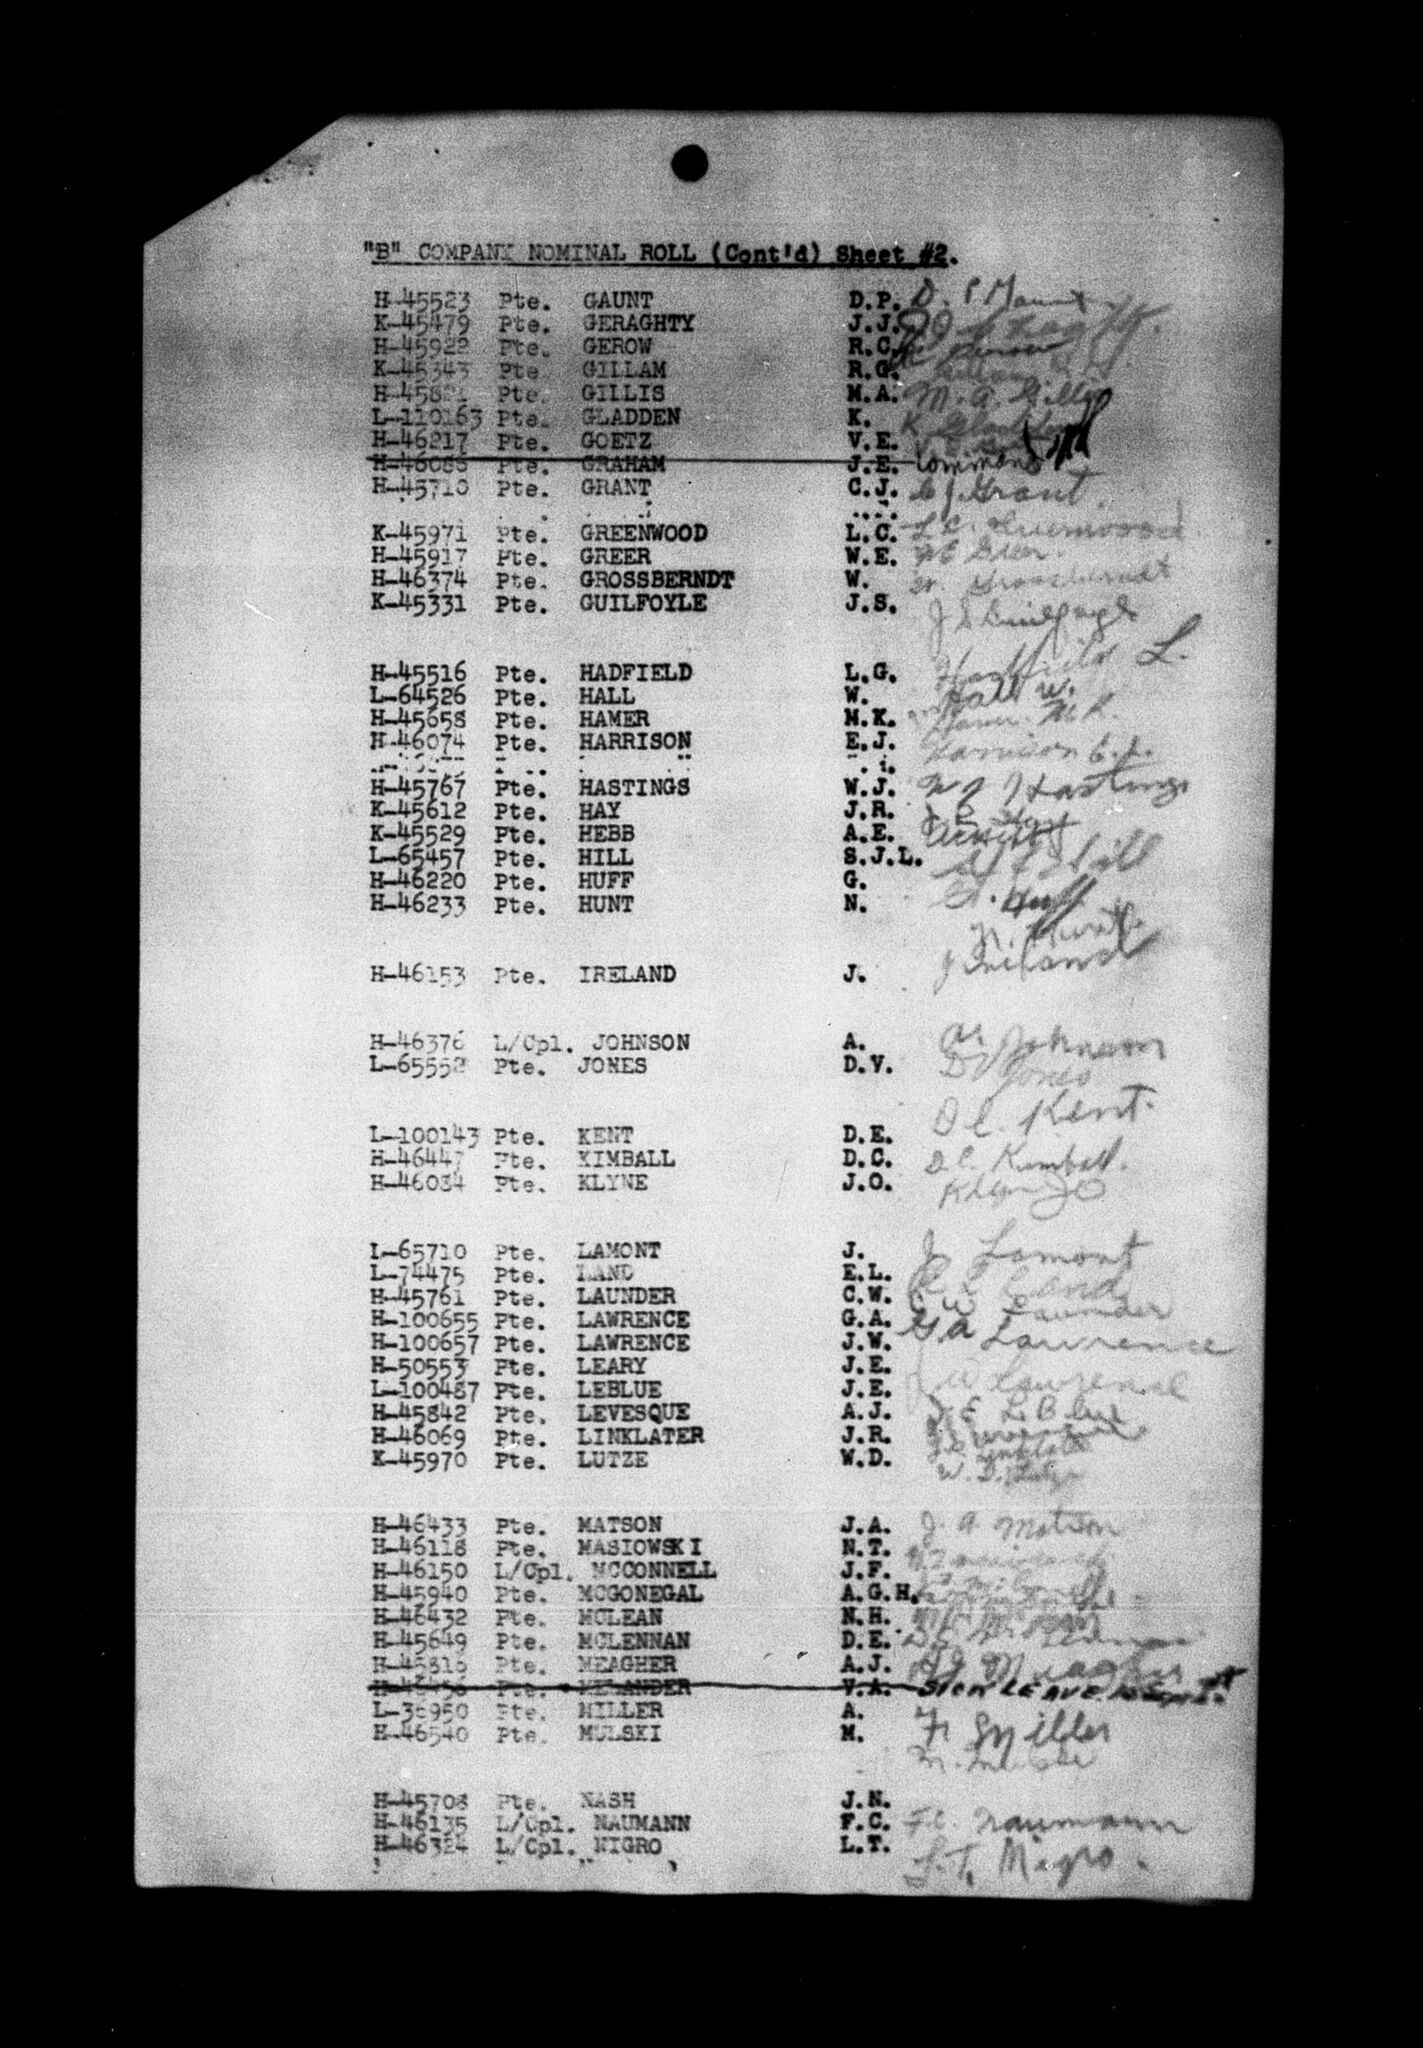 "B" COMPANY NOMINAL ROLL (Cont'd) Sheet #2.
H-45523 Pte. GAUNT D.P. D. P Gaunt
K-45479 Pte. GERAGHTY J.J.
H-45922 Pte. GEROW R.C. Gerow
K-45343 Pte. GILLAM R.G.
Pte. GILLIS M.A. M. A. Gillis
L-110163 Pte. GLADDEN K. K. Gladden
H-46217 Pte. GOETZ V.E.
H-46088 Pte. GRAHAM J.E. Command
H-45710 Pte. GRANT C.J. C J Grant
K-45971 Pte. GREENWOOD L.C. L C. Greenwood
H-45917 Pte. GREER W.E. W E Greer.
H-46374 Pte. GROSSBERNDT W. W. Grossberndt
K-45331 Pte. GUILFOYLE J.S. J S Guilfoyle
H-45516 Pte. HADFIELD L.G. Hadfield L.
L-64526 Pte. HALL W. Hall W.
H-45658 Pte. HAMER M.K. Hamer M K.
H-46074 Pte. HARRISON E.J. Harrison E. J.
H-45767 Pte. HASTINGS W.J. W J Hastings
K-45612 Pte. HAY J.R. J R Hay
K-45529 Pte. HEBB A.E.
L-65457 Pte. HILL S.J.L. Hill
H-46220 Pte. HUFF G. G. Huff
H-46233 Pte. HUNT N. N. Hunt
H-46153 Pte. IRELAND J. J Ireland
H-46376 L/Cpl. JOHNSON A. A. Johnson
L-65552 Pte. JONES D.V. D V Jones
L-100143 Pte. KENT D.E. D E. Kent.
H-46447 Pte. KIMBALL D.C. D. C. Kimball.
H-46034 Pte. KLYNE J.O. Klyne J O
L-65710 Pte. LAMONT J. J. Lamont
L-74475 Pte. LAND E.L. E L Land
H-45761 Pte. LAUNDER C.W. C W Launder
H-100655 Pte. LAWRENCE G.A. G A Lawrence
H-100657 Pte. LAWRENCE J.W. J W Lawrence
H-50553 Pte. LEARY J.E.
L-100487 Pte. LEBLUE J.E. J. E LeBlue
H-45842 Pte. LEVESQUE A.J.
H-46069 Pte. LINKLATER J.R. Linklater
K-45970 Pte. LUTZE W.D. W. D. Lutze
H-46433 Pte. MATSON J.A. J. A Matson
H-46118 Pte. MASIOWSKI N.T.
H-46150 L/Cpl. MCCONNELL J.F.
H-45940 Pte. MCGONEGAL A.G.H.
H-46432 Pte. MCLEAN N.H.
H-45649 Pte. MCLENNAN D.E.
Pte. MEAGHER A.J. A J Meagher
Pte. MELANDER V.A. SICK LEAVE
Pte. MILLER A. Miller
H-46540 Pte. MULSKI M. M. Mulski
H-45708 Pte. NASH J.N.
H-46135 L/Cpl. NAUMANN F.C. F.C. Naumann
H-46324 L/Cpl. NIGRO L.T. L. T. Nigro.